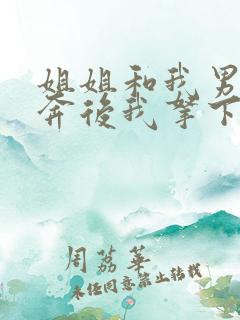 姐姐和我男
奔后我拿下
周荔华
未经同意禁止转载